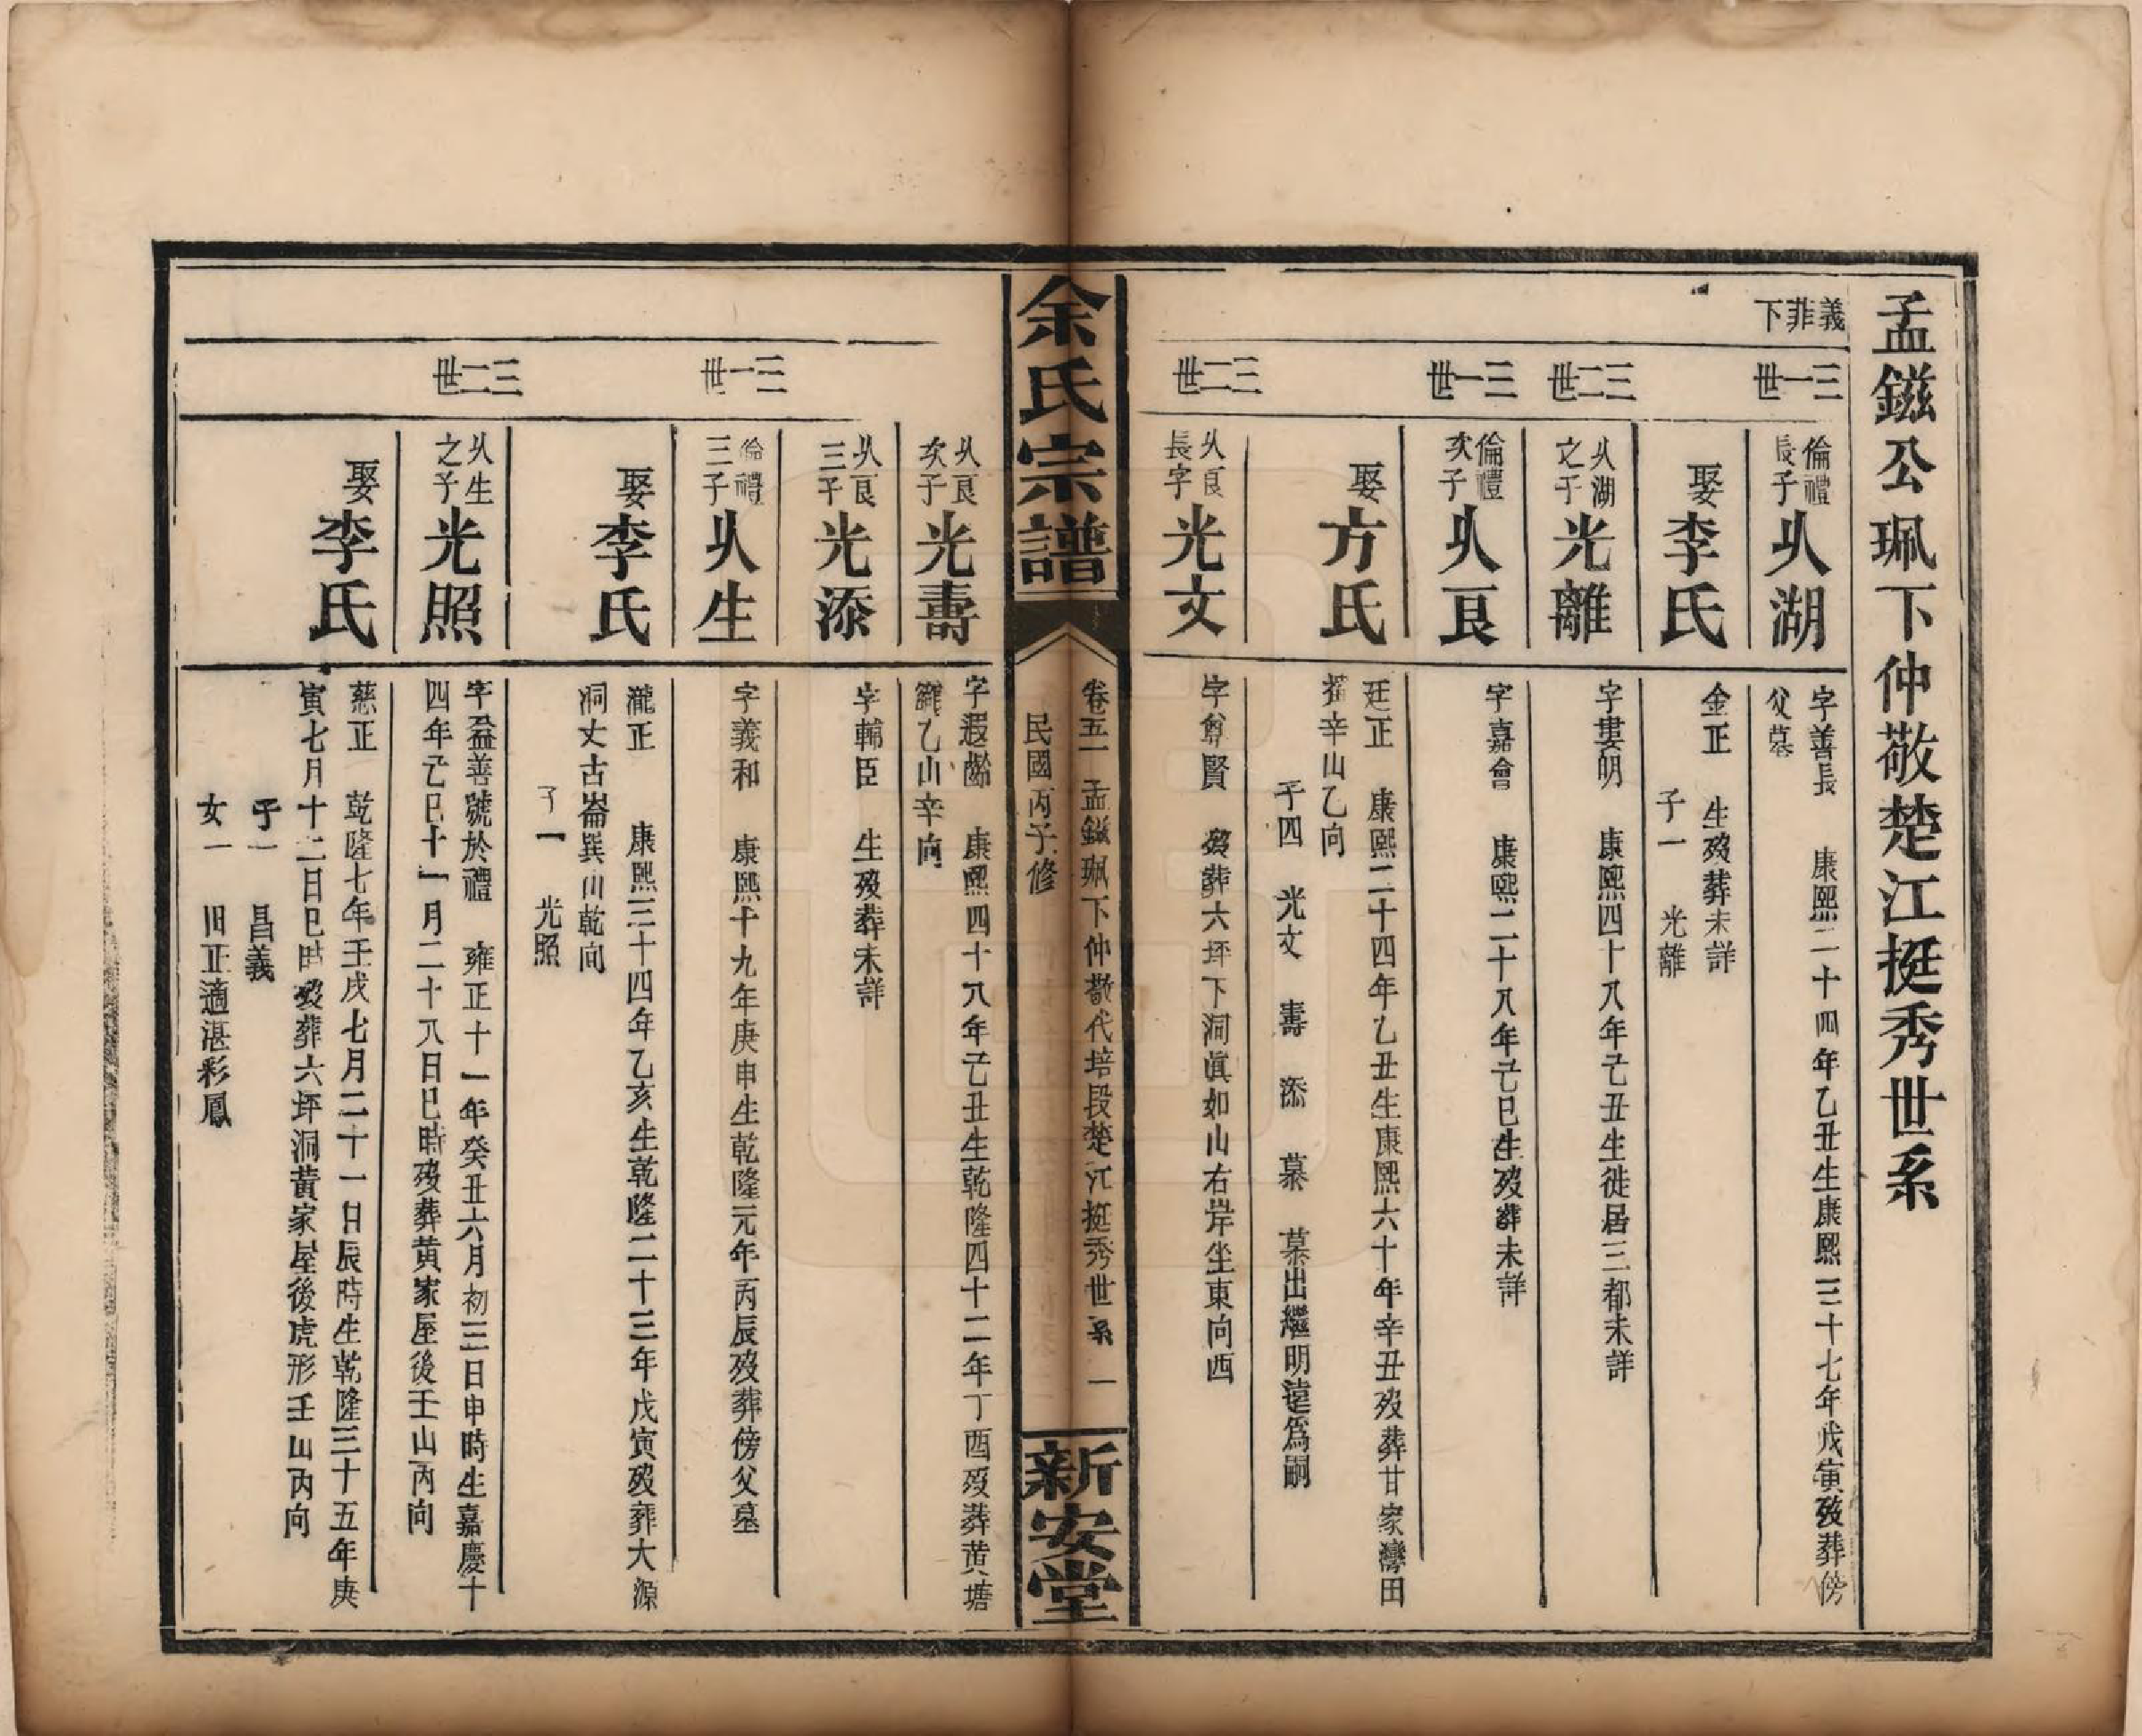 孟鎡公珮下仲敬楚江挺秀世系
義菲下
三一世
倫禮長子
乆湖
字善長 康熙二十四年乙丑生康熙三十七年戊寅歿葬傍
父墓
娶
李氏
金正 生歿葬未詳
子一 光離
三二世
乆湖之子
光離
字婁明 康熙四十八年己丑生徙居三都未詳
三一世
倫禮次子
乆良
字嘉會 康熙二十八年己巳生歿葬未詳
娶
方氏
廷正 康熙二十四年乙丑生康熙六十年辛丑歿葬甘家灣田
辛山乙向
子四 光文 壽 添 慕 慕出繼明遠為嗣
三二世
乆良長子
光文
字尊賢 歿葬六坪下洞眞如山右岸坐東向西
余氏宗譜
卷五一 孟鎡珮下仲敬代培段楚江挺秀世系 一
民國丙子修
新安堂
乆良次子
光壽
字遐齡 康熙四十八年己丑生乾隆四十二年丁酉歿葬黄塘
乙山辛向
乆良三子
光添
字輔臣 生歿葬未詳
三一世
倫禮三子
乆生
字義和 康熙十九年庚申生乾隆元年丙辰歿葬傍父墓
娶
李氏
瀧正 康熙三十四年乙亥生乾隆二十三年戊寅歿葬大源
洞丈古崙巽山乾向
子一 光照
三二世
乆生之子
光照
字益善號於禮 雍正十一年癸丑六月初三日申時生嘉慶十
四年己巳十一月二十八日巳時歿葬黄家屋後壬山丙向
娶
李氏
慈正 乾隆七年壬戌七月二十一日辰時生乾隆三十五年庚
寅七月十二日巳時歿葬六坪洞黄家屋後虎形壬山丙向
子一 昌義
女一 旧正適湛彩鳳